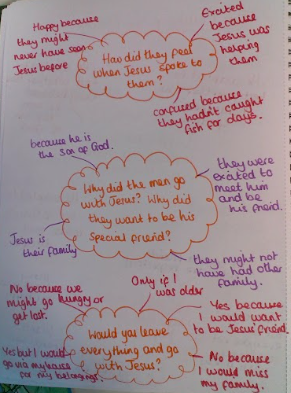 Happy because
they might
never have seen
Jesus before
Excited
because
Jesus was
helping
them
How did they feel
when Jesus spoke to
them?
confused because
they hadn't caught
fish for days.
because he is
the Son of God.
they were
excited to
meet him
and be
his friend.
Why did the men go
with Jesus? Why did
they want to be his
special friend?
Jesus is
their family
they might not
have had other
family.
No because we
might go hungry or
get lost.
Only if I
was older
Yes because
I would want
to be Jesus' friend.
Would you leave
everything and go
with Jesus?
Yes but I would
go via my house
for my belongings.
No because
I would miss
my family.